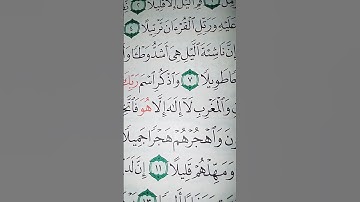 قُمِ ٱلَّيۡلَ إِلَّا قَلِيلٗا ٢
عَلَيۡهِ وَرَتِّلِ ٱلۡقُرۡءَانَ تَرۡتِيلًا ٤
إِنَّ نَاشِئَةَ ٱلَّيۡلِ هِيَ أَشَدُّ وَطۡـٔٗا
طَوِيلٗا ٧ وَٱذۡكُرِ ٱسۡمَ رَبِّكَ
وَٱلۡمَغۡرِبِ لَآ إِلَٰهَ إِلَّا هُوَ
وَٱهۡجُرۡهُمۡ هَجۡرٗا جَمِيلٗا
وَمَهِّلۡهُمۡ قَلِيلًا ١١ إِنَّ
١٣